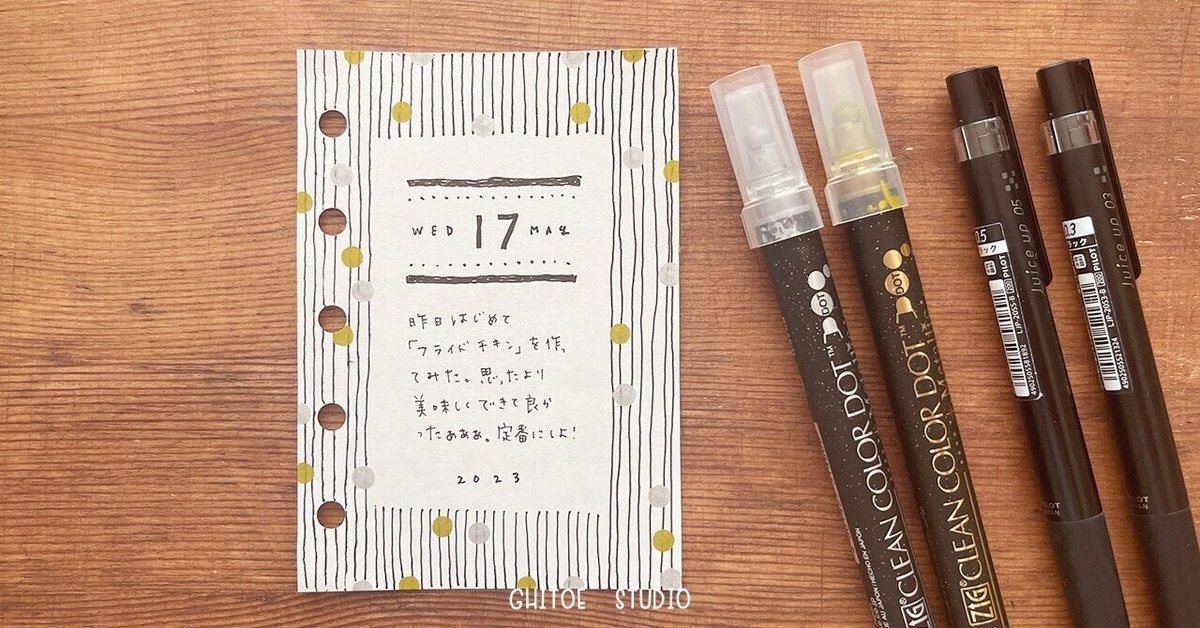 WED 17 MAY
昨日はじめて
「フライドチキン」を作っ
てみた。思ったより
美味しくできて良か
ったぁぁぁ。定番にしよ!
2023
DOT
ZIG® CLEAN COLOR DOT™
DOT
ZIG® CLEAN COLOR DOT™ Metallic
Juice up 05
0.5
ラック
PILOT
LJP-20S5-B
4902505581892
PILOT
JAPAN
Juice up 03
0.3
ラック
PILOT
LJP-20S3-B
4902505521324
PILOT
JAPAN
GHITOE STUDIO